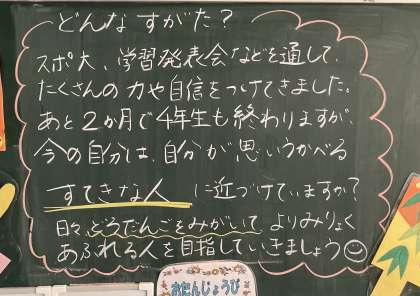 どんな すがた？
スポ大、学習発表会などを通して、
たくさんの力や自信をつけてきました。
あと２か月で４年生も終わりますが、
今の自分は、自分が思いうかべる
すてきな人 に近づけていますか？
日々、どろだんごをみがいて よりみりょく
あふれる人を目指していきましょう
おたんじょうび